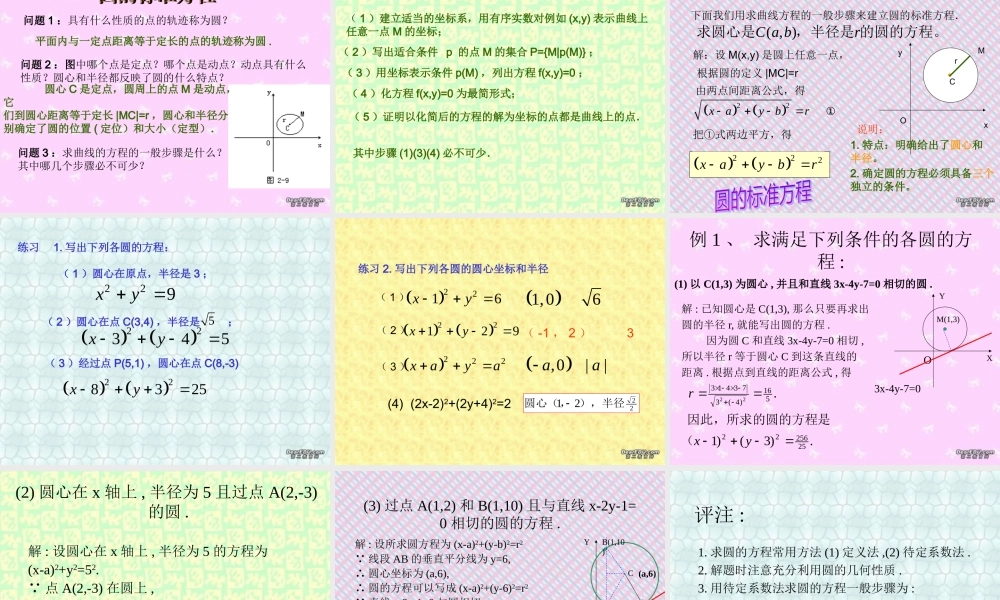 问题 1 ：具有什么性质的点的轨迹称为圆？
平面内与一定点距离等于定长的点的轨迹称为圆．
问题 2 ：图中哪个点是定点？哪个点是动点？动点具有什么
性质？圆心和半径都反映了圆的什么特点？
圆心 C 是定点，圆周上的点 M 是动点，
它
们到圆心距离等于定长 |MC|=r ，圆心和半径分
别确定了圆的位置 ( 定位）和大小（定型）．
问题 3 ：求曲线的方程的一般步骤是什么？
其中哪几个步骤必不可少？
y
M
r
C
O
x
图 2-9
（ 1 ）建立适当的坐标系，用有序实数对例如 (x,y) 表示曲线上
任意一点 M 的坐标；
（ 2 ）写出适合条件 p 的点 M 的集合 P={M|p(M)} ；
（ 3 ）用坐标表示条件 p(M) ，列出方程 f(x,y)=0 ；
（ 4 ）化方程 f(x,y)=0 为最简形式；
（ 5 ）证明以化简后的方程的解为坐标的点都是曲线上的点．
其中步骤 (1)(3)(4) 必不可少．
下面我们用求曲线方程的一般步骤来建立圆的标准方程．
求圆心是C(a,b)，半径是r的圆的方程。
解：设 M(x,y) 是圆上任意一点，
根据圆的定义 |MC|=r
由两点间距离公式，得
√(x-a)²+(y-b)²=r ①
把①式两边平方，得
(x-a)²+(y-b)²=r²
圆的标准方程
y
M
r
C
O
x
说明：
1. 特点：明确给出了圆心和
半径。
2. 确定圆的方程必须具备三个
独立的条件。
练习 1. 写出下列各圆的方程：
（ 1 ）圆心在原点，半径是 3 ；
x²+y²=9
（ 2 ）圆心在点 C(3,4) ，半径是 √5 ；
(x-3)²+(y-4)²=5
（ 3 ）经过点 P(5,1) ，圆心在点 C(8,-3)
(x-8)²+(y+3)²=25
练习 2. 写出下列各圆的圆心坐标和半径
（ 1 ） (x-1)²+y²=6 (1,0) √6
（ 2 ） (x+1)²+(y-2)²=9 （ -1 ， 2 ） 3
（ 3 ） (x+a)²+y²=a² (-a,0) |a|
(4) (2x-2)²+(2y+4)²=2 圆心（1，-2），半径√2/2
例 1 、 求满足下列条件的各圆的方
程：
(1) 以 C(1,3) 为圆心 , 并且和直线 3x-4y-7=0 相切的圆 .
解 : 已知圆心是 C(1,3), 那么只要再求出
圆的半径 r, 就能写出圆的方程 .
因为圆 C 和直线 3x-4y-7=0 相切 ,
所以半径 r 等于圆心 C 到这条直线的
距离 . 根据点到直线的距离公式 , 得
r=|3×1-4×3-7|/√3²+(-4)²=16/5.
因此，所求的圆的方程是
（x-1)²+(y-3)²=256/25.
Y
M(1,3)
O
X
3x-4y-7=0
(2) 圆心在 x 轴上 , 半径为 5 且过点 A(2,-3)
的圆 .
解 : 设圆心在 x 轴上 , 半径为 5 的方程为
(x-a)²+y²=5².
∵ 点 A(2,-3) 在圆上 ,
(3) 过点 A(1,2) 和 B(1,10) 且与直线 x-2y-1=
0 相切的圆的方程 .
解 : 设所求圆方程为 (x-a)²+(y-b)²=r²
∵ 线段 AB 的垂直平分线为 y=6,
∴ 圆心坐标为 (a,6),
∴ 圆的方程可以写成 (x-a)²+(y-6)²=r²
Y
B(1,10
)
C
(a,6)
评注 :
1. 求圆的方程常用方法 (1) 定义法 ,(2) 待定系数法 .
2. 解题时注意充分利用圆的几何性质 .
3. 用待定系数法求圆的方程一般步骤为 :